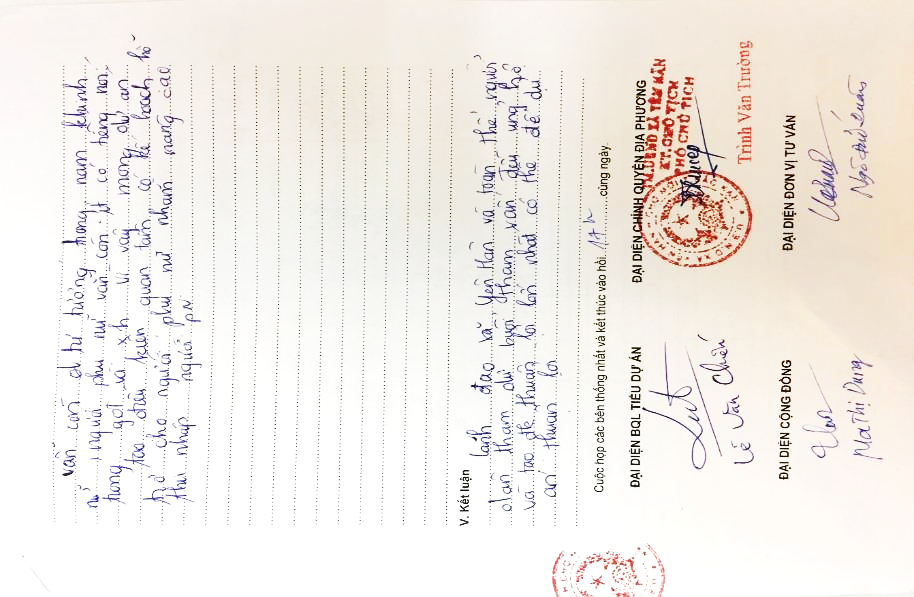 vẫn còn có tư tưởng trọng nam khinh
nữ người phụ nữ vẫn còn ít có tiếng nói
trong gđ và xh vì vậy mong dự án
tạo điều kiện quan tâm có kế hoạch hỗ
trợ cho người phụ nữ nhằm nâng cao
thu nhập người PN
V. Kết luận
lãnh đạo xã Yên Hân và toàn thể người
dân tham dự buổi tham vấn đều ủng hộ
và tạo đk thuận lợi lớn nhất có thể để dự
án thuận lợi
Cuộc họp các bên thống nhất và kết thúc vào hồi 17h cùng ngày.
ĐẠI DIỆN BQL TIỂU DỰ ÁN
ĐẠI DIỆN CHÍNH QUYỀN ĐỊA PHƯƠNG
TM.UBND XÃ YÊN HÂN
KT.CHỦ TỊCH
PHÓ CHỦ TỊCH
Lê Văn Chiến
Trịnh Văn Trường
ĐẠI DIỆN CỘNG ĐỒNG
ĐẠI DIỆN ĐƠN VỊ TƯ VẤN
Ma Thị Dung
Ngô